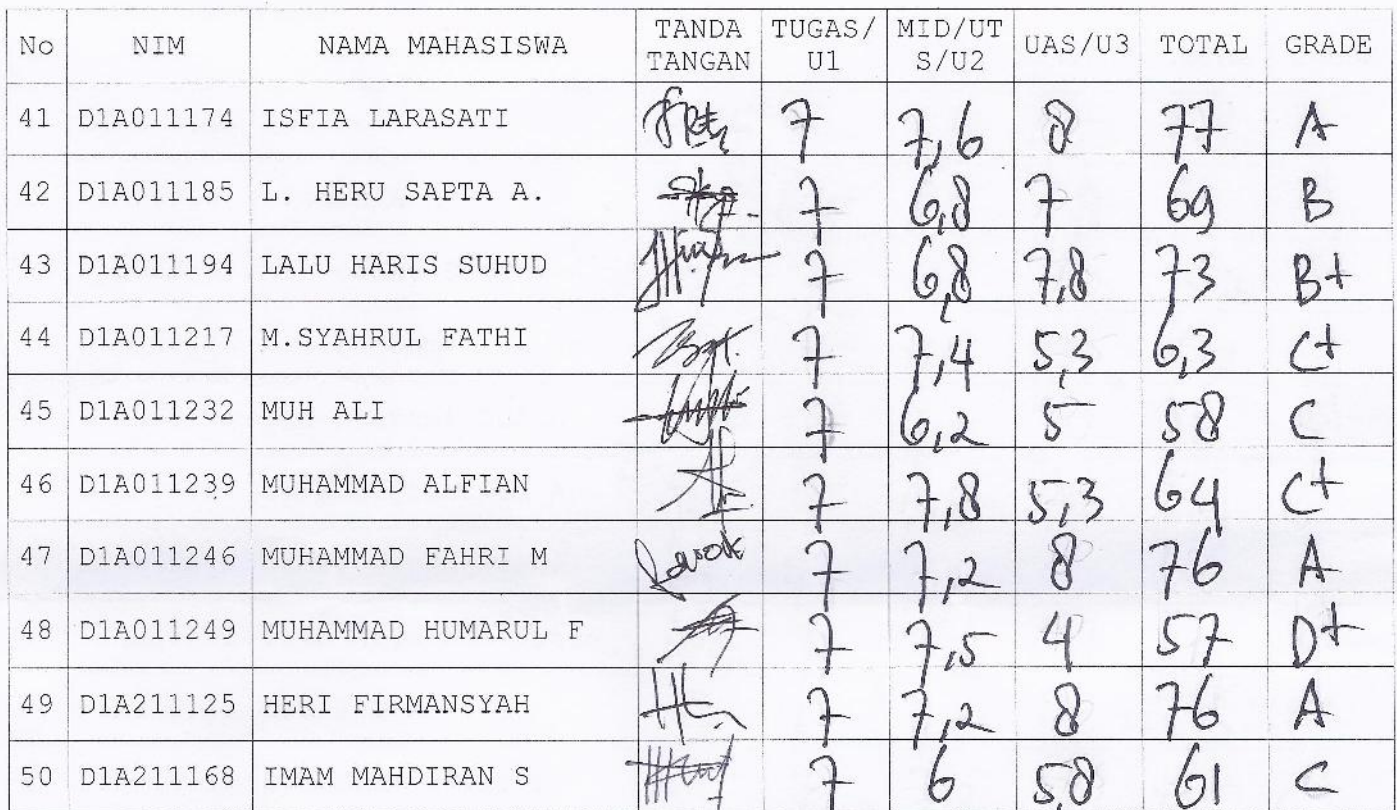 No NIM NAMA MAHASISWA TANDA TANGAN TUGAS/U1 MID/UTS/U2 UAS/U3 TOTAL GRADE
41 D1A011174 ISFIA LARASATI 7 7,6 8 77 A
42 D1A011185 L. HERU SAPTA A. 7 6,8 7 69 B
43 D1A011194 LALU HARIS SUHUD 7 6,8 7,8 73 B+
44 D1A011217 M.SYAHRUL FATHI 7 7,4 5,3 6,3 C+
45 D1A011232 MUH ALI 7 6,2 5 58 C
46 D1A011239 MUHAMMAD ALFIAN 7 7,8 5,3 64 C+
47 D1A011246 MUHAMMAD FAHRI M 7 7,2 8 76 A
48 D1A011249 MUHAMMAD HUMARUL F 7 7,5 4 57 D+
49 D1A211125 HERI FIRMANSYAH 7 7,2 8 76 A
50 D1A211168 IMAM MAHDIRAN S 7 6 5,8 61 C